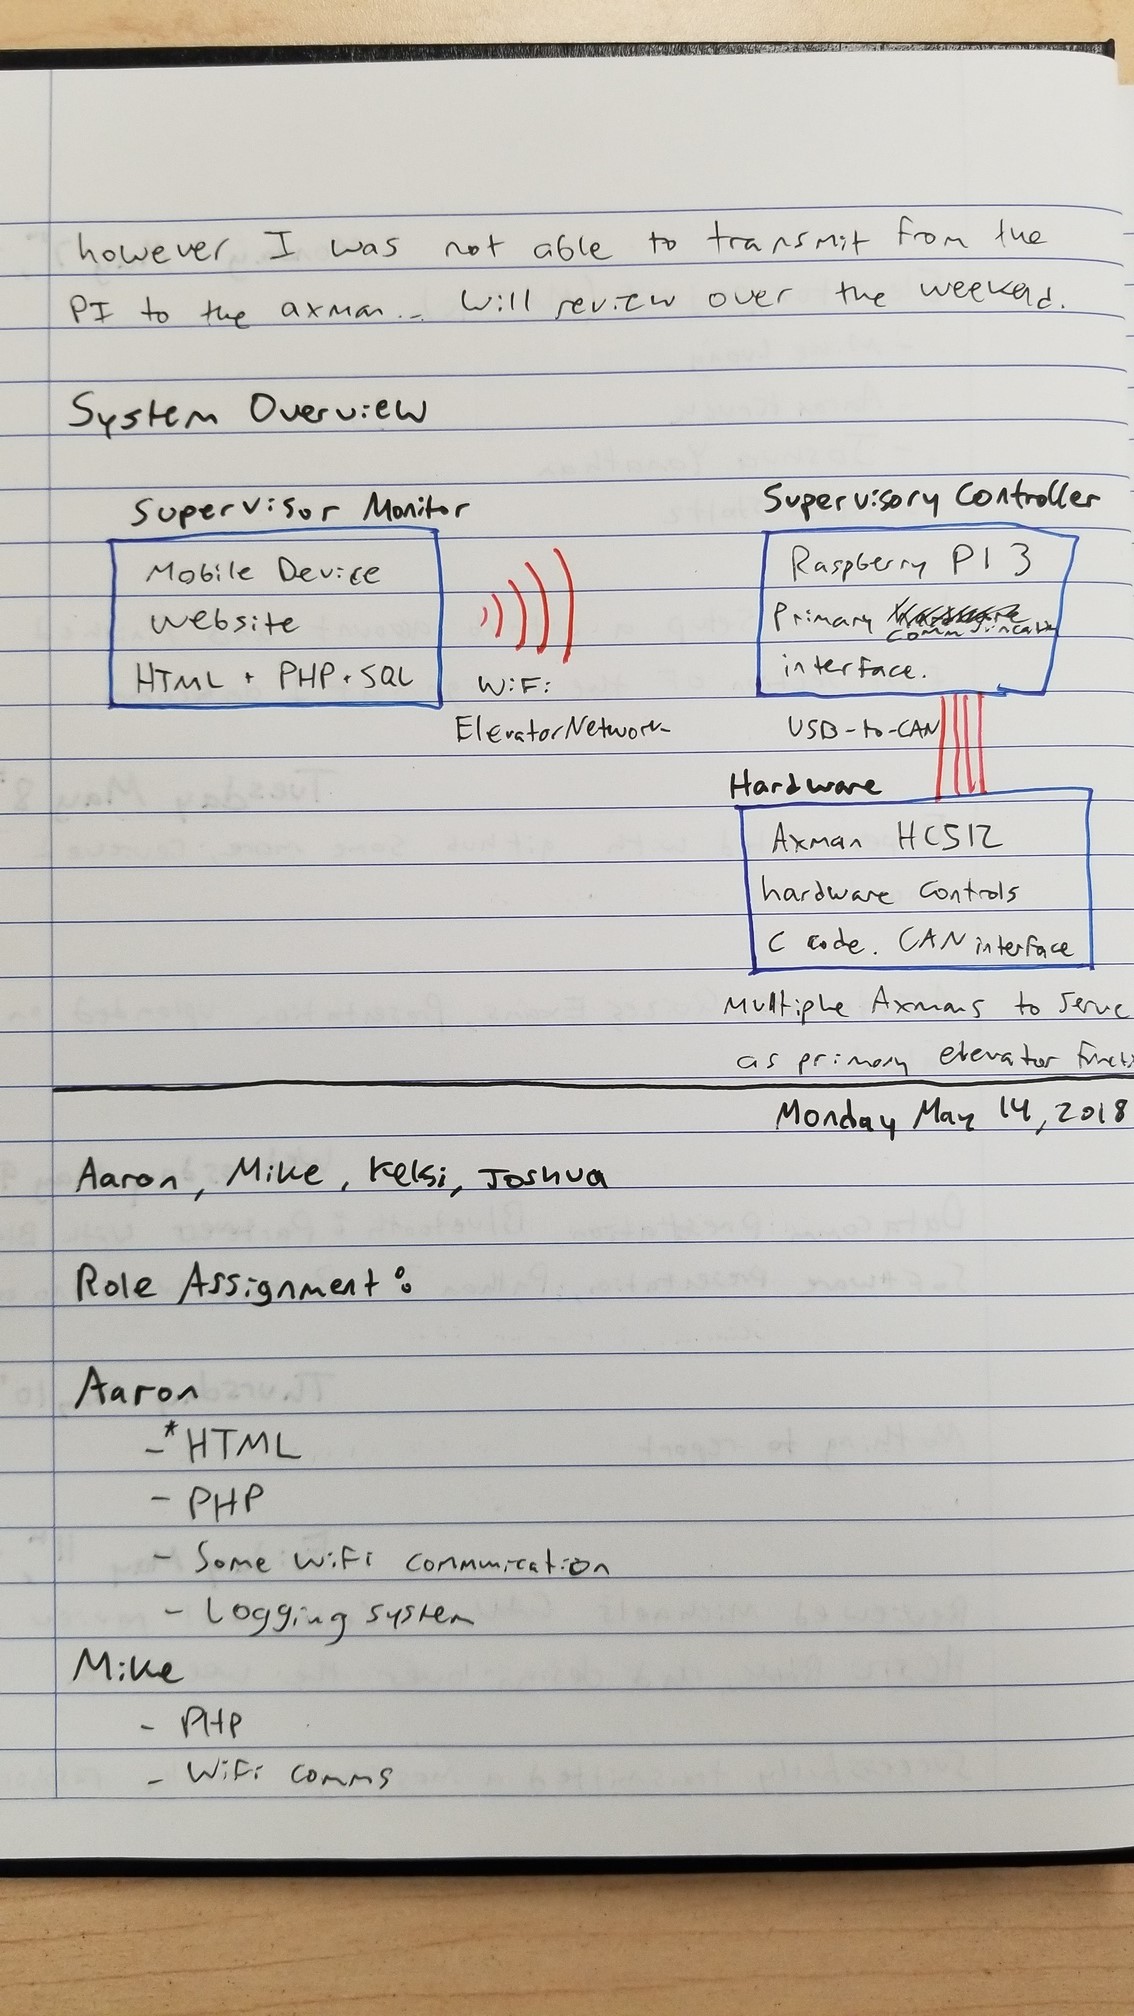 however I was not able to transmit from the
PI to the axman... Will review over the weekend.
System Overview
Supervisor Monitor
Mobile Device
Website
HTML + PHP + SQL
WiFi:
ElevatorNetwork
Supervisory Controller
Raspberry PI 3
Primary
interface.
USB-to-CAN
Hardware
Axman HCS12
hardware controls
C code. CAN interface
Multiple Axmans to serve
as primary elevator
Monday May 14, 2018
Aaron, Mike, Kelsi, Joshua
Role Assignment:
Aaron
-* HTML
- PHP
- Some WiFi communication
- Logging system
Mike
- PHP
- WiFi comms